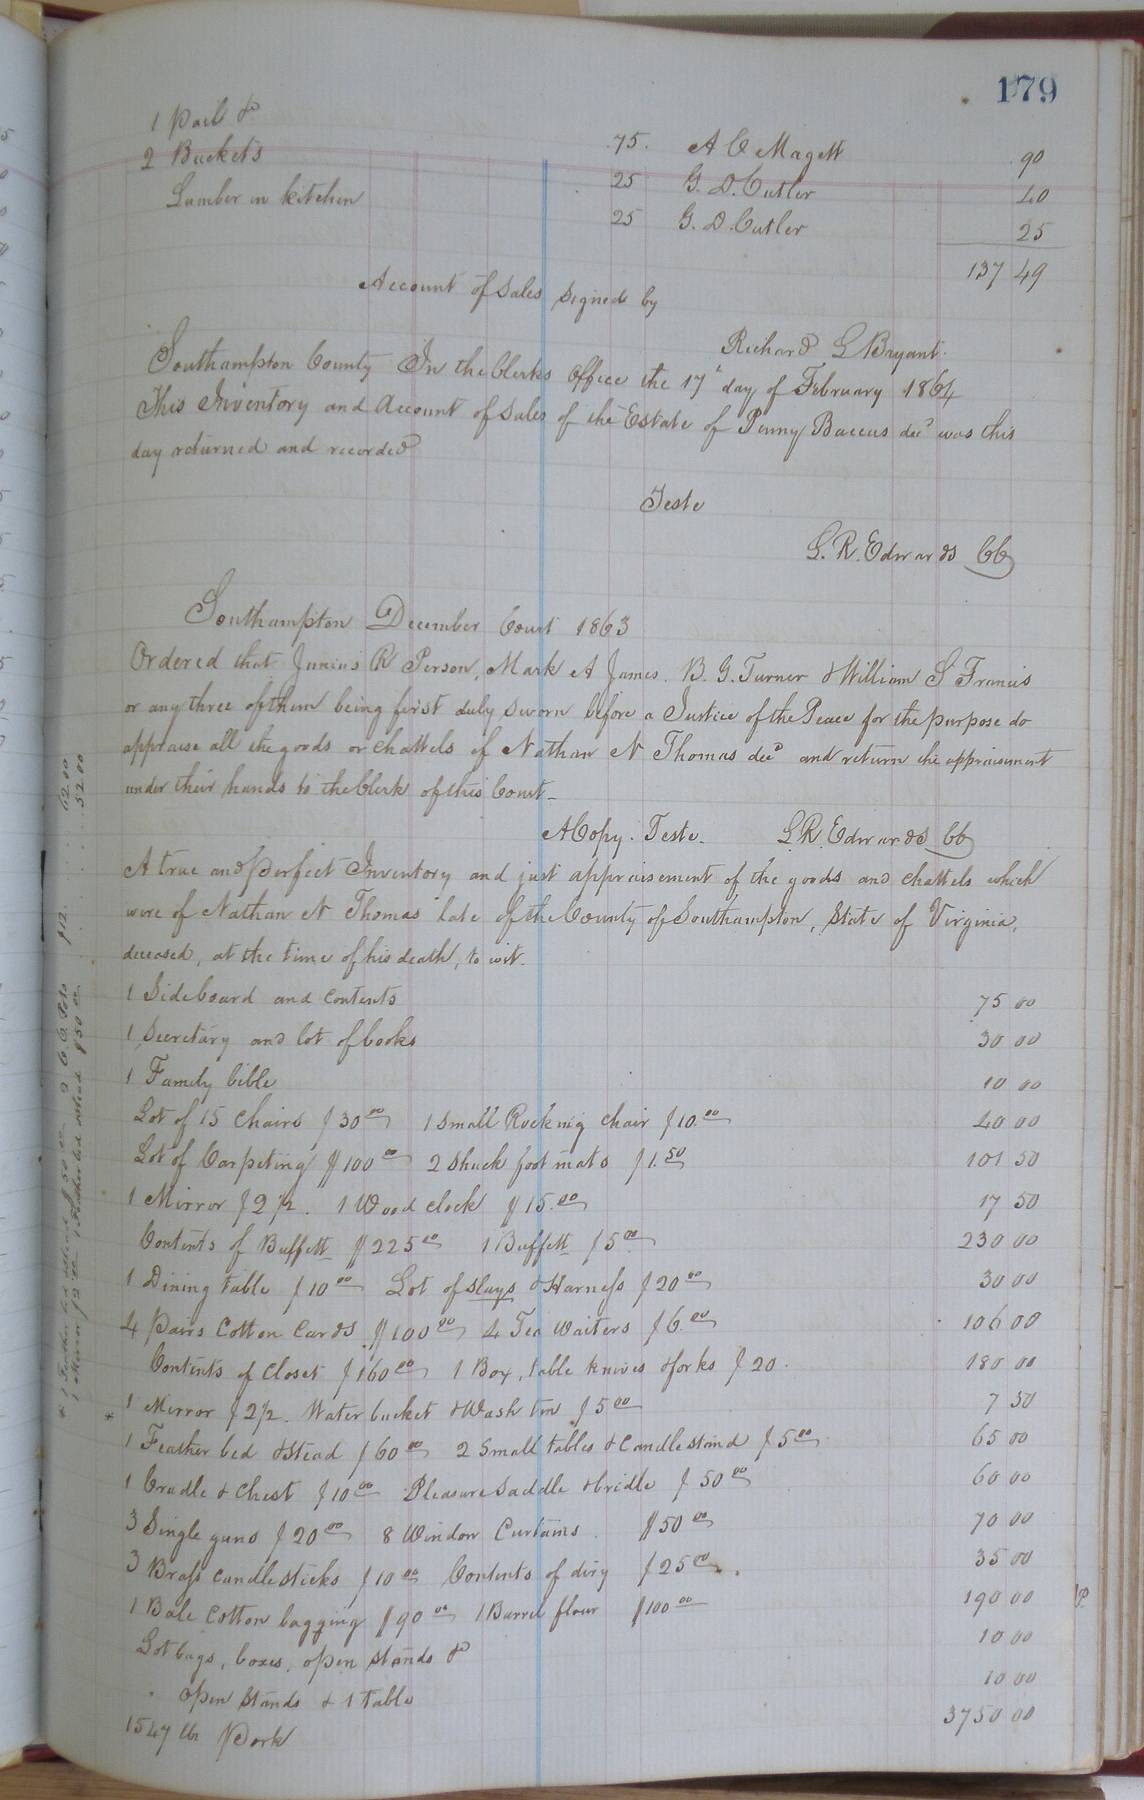 179
1 Pail &c 75. A C Magett 90
2 Buckets 25 G. D. Cutler 40
Lumber in kitchen 25 G. D. Cutler 25
137 49
Account of Sales signed by
Richard L Bryant.
Southampton County In the Clerks Office the 17" day of February 1864
This Inventory and Account of Sales of the Estate of Penny Baccus decd was this
day returned and recorded
Teste
L. R. Edwards CC
Southampton December Court 1863
Ordered that Junius R Person, Mark A James. B. G. Turner & William S Francis
or any three of them being first duly sworn before a Justice of the Peace for the purpose do
appraise all the goods or chattels of Nathan N Thomas decd and return the appraisement
under their hands to the Clerk of this Court_
A Copy. Teste. L R. Edwards CC
A true and perfect Inventory and just appraisement of the goods and chattels which
were of Nathan N Thomas late of the County of Southampton, State of Virginia,
deceased, at the time of his death, to wit.
1 Sideboard and contents 75 00
1 Secretary and lot of books 30 00
1 Family bible 10 00
Lot of 15 Chairs $30 00 1 Small Rocking chair $10.00 40 00
Lot of Carpeting $100 00 2 Shuck foot mats $1.50 101 50
1 Mirror $2 1/2. 1 Wood clock $15.00 17 50
Contents of Buffett $225 00 1 Buffett $5 00 230 00
1 Dining table $10 00 Lot of Slays & Harness $20 00 30 00
4 Pairs Cotton Cards $100 00 4 Tea Waiters $6.00 106 00
Contents of Closet $160 00 1 Box, table knives & forks $20. 180 00
* 1 Mirror $2 1/2. Water bucket & Wash tin $5 00 7 50
1 Feather bed & Stead $60 00 2 Small tables & Candlestand $5 00 65 00
1 Cradle & Chest $10 00 Pleasure Saddle & bridle $50 00 60 00
3 Single guns $20 00 8 Window Curtains. $50 00 70 00
3 Brass candlesticks $10 00 Contents of diry $25 00. 35 00
1 Bale Cotton bagging $90 00 1 Barrel flour $100 00 190 00
Lot bags, boxes, open stands &c 10 00
open stands & 1 table 10 00
1547 lbs Pork 3750 00
* 1 Feather bed & stead $50 00 2 C. C. Pots $12. 62 00
1 Mirror $2 00 1 Feather bed & Stead $50 00 52 00